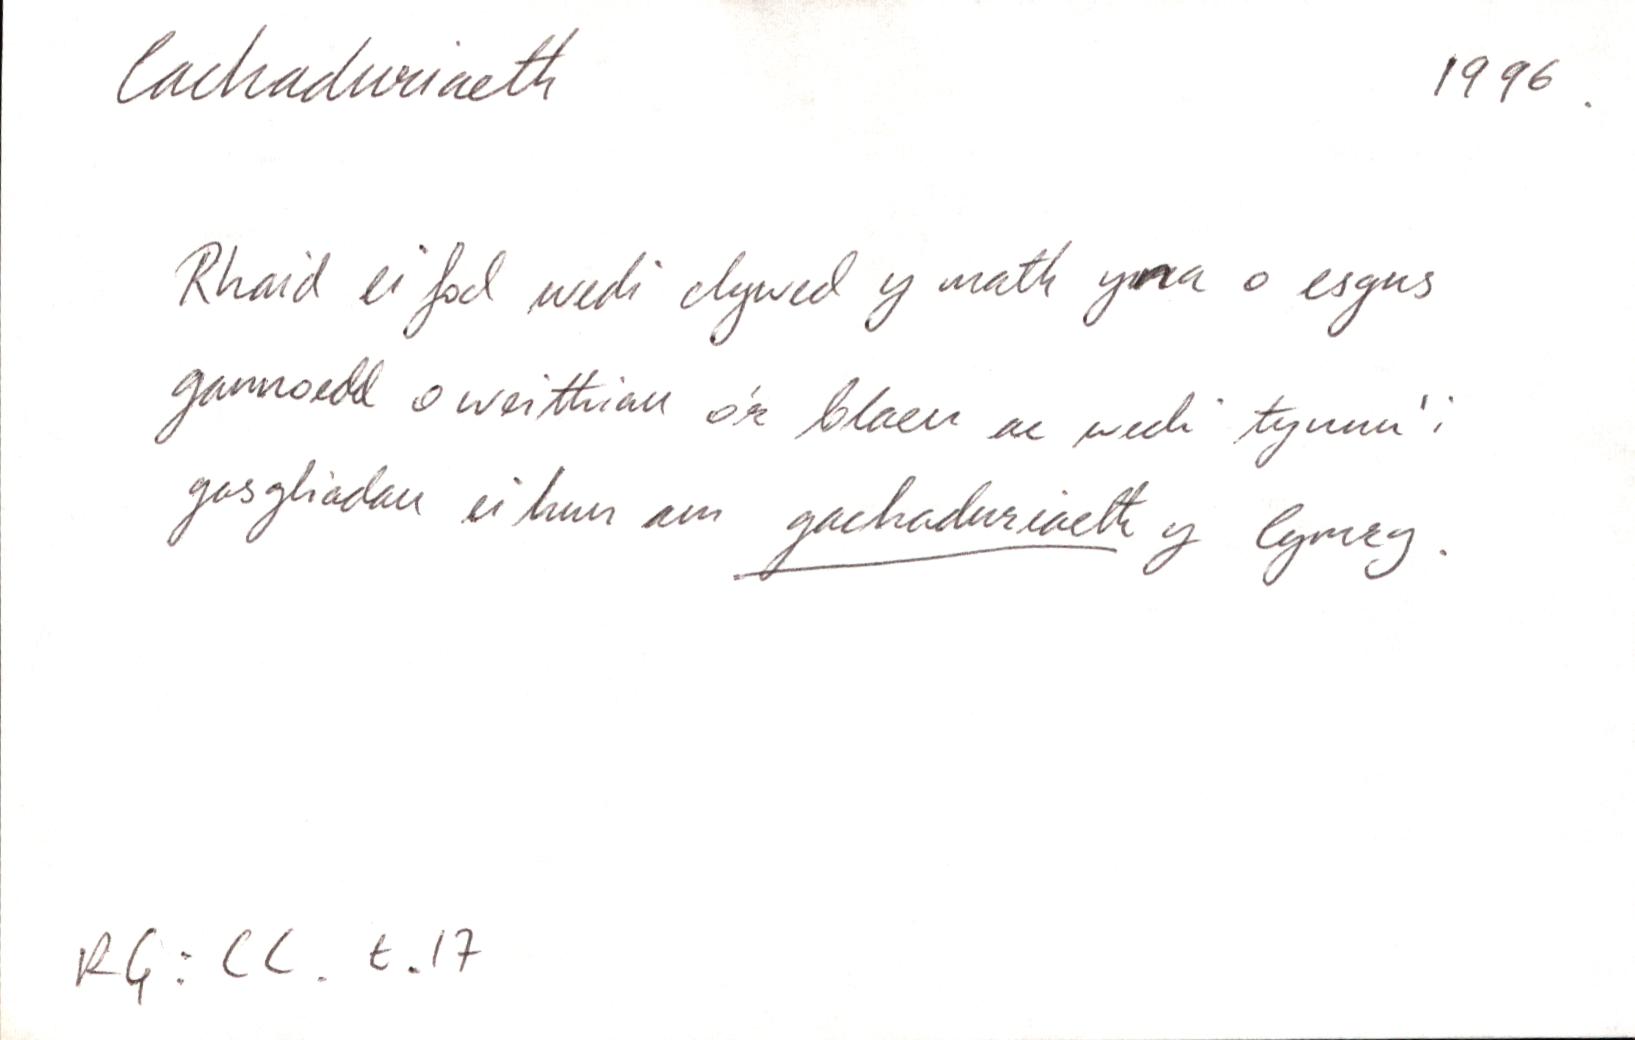 Cachaduriaeth 1996.
Rhaid ei fod wedi clywed y math yma o esgus
gannoedd o weithiau o'r blaen ac wedi tynnu'i
gasgliadau ei hun am gachaduriaeth y Cymry.
RG: CC. t.17